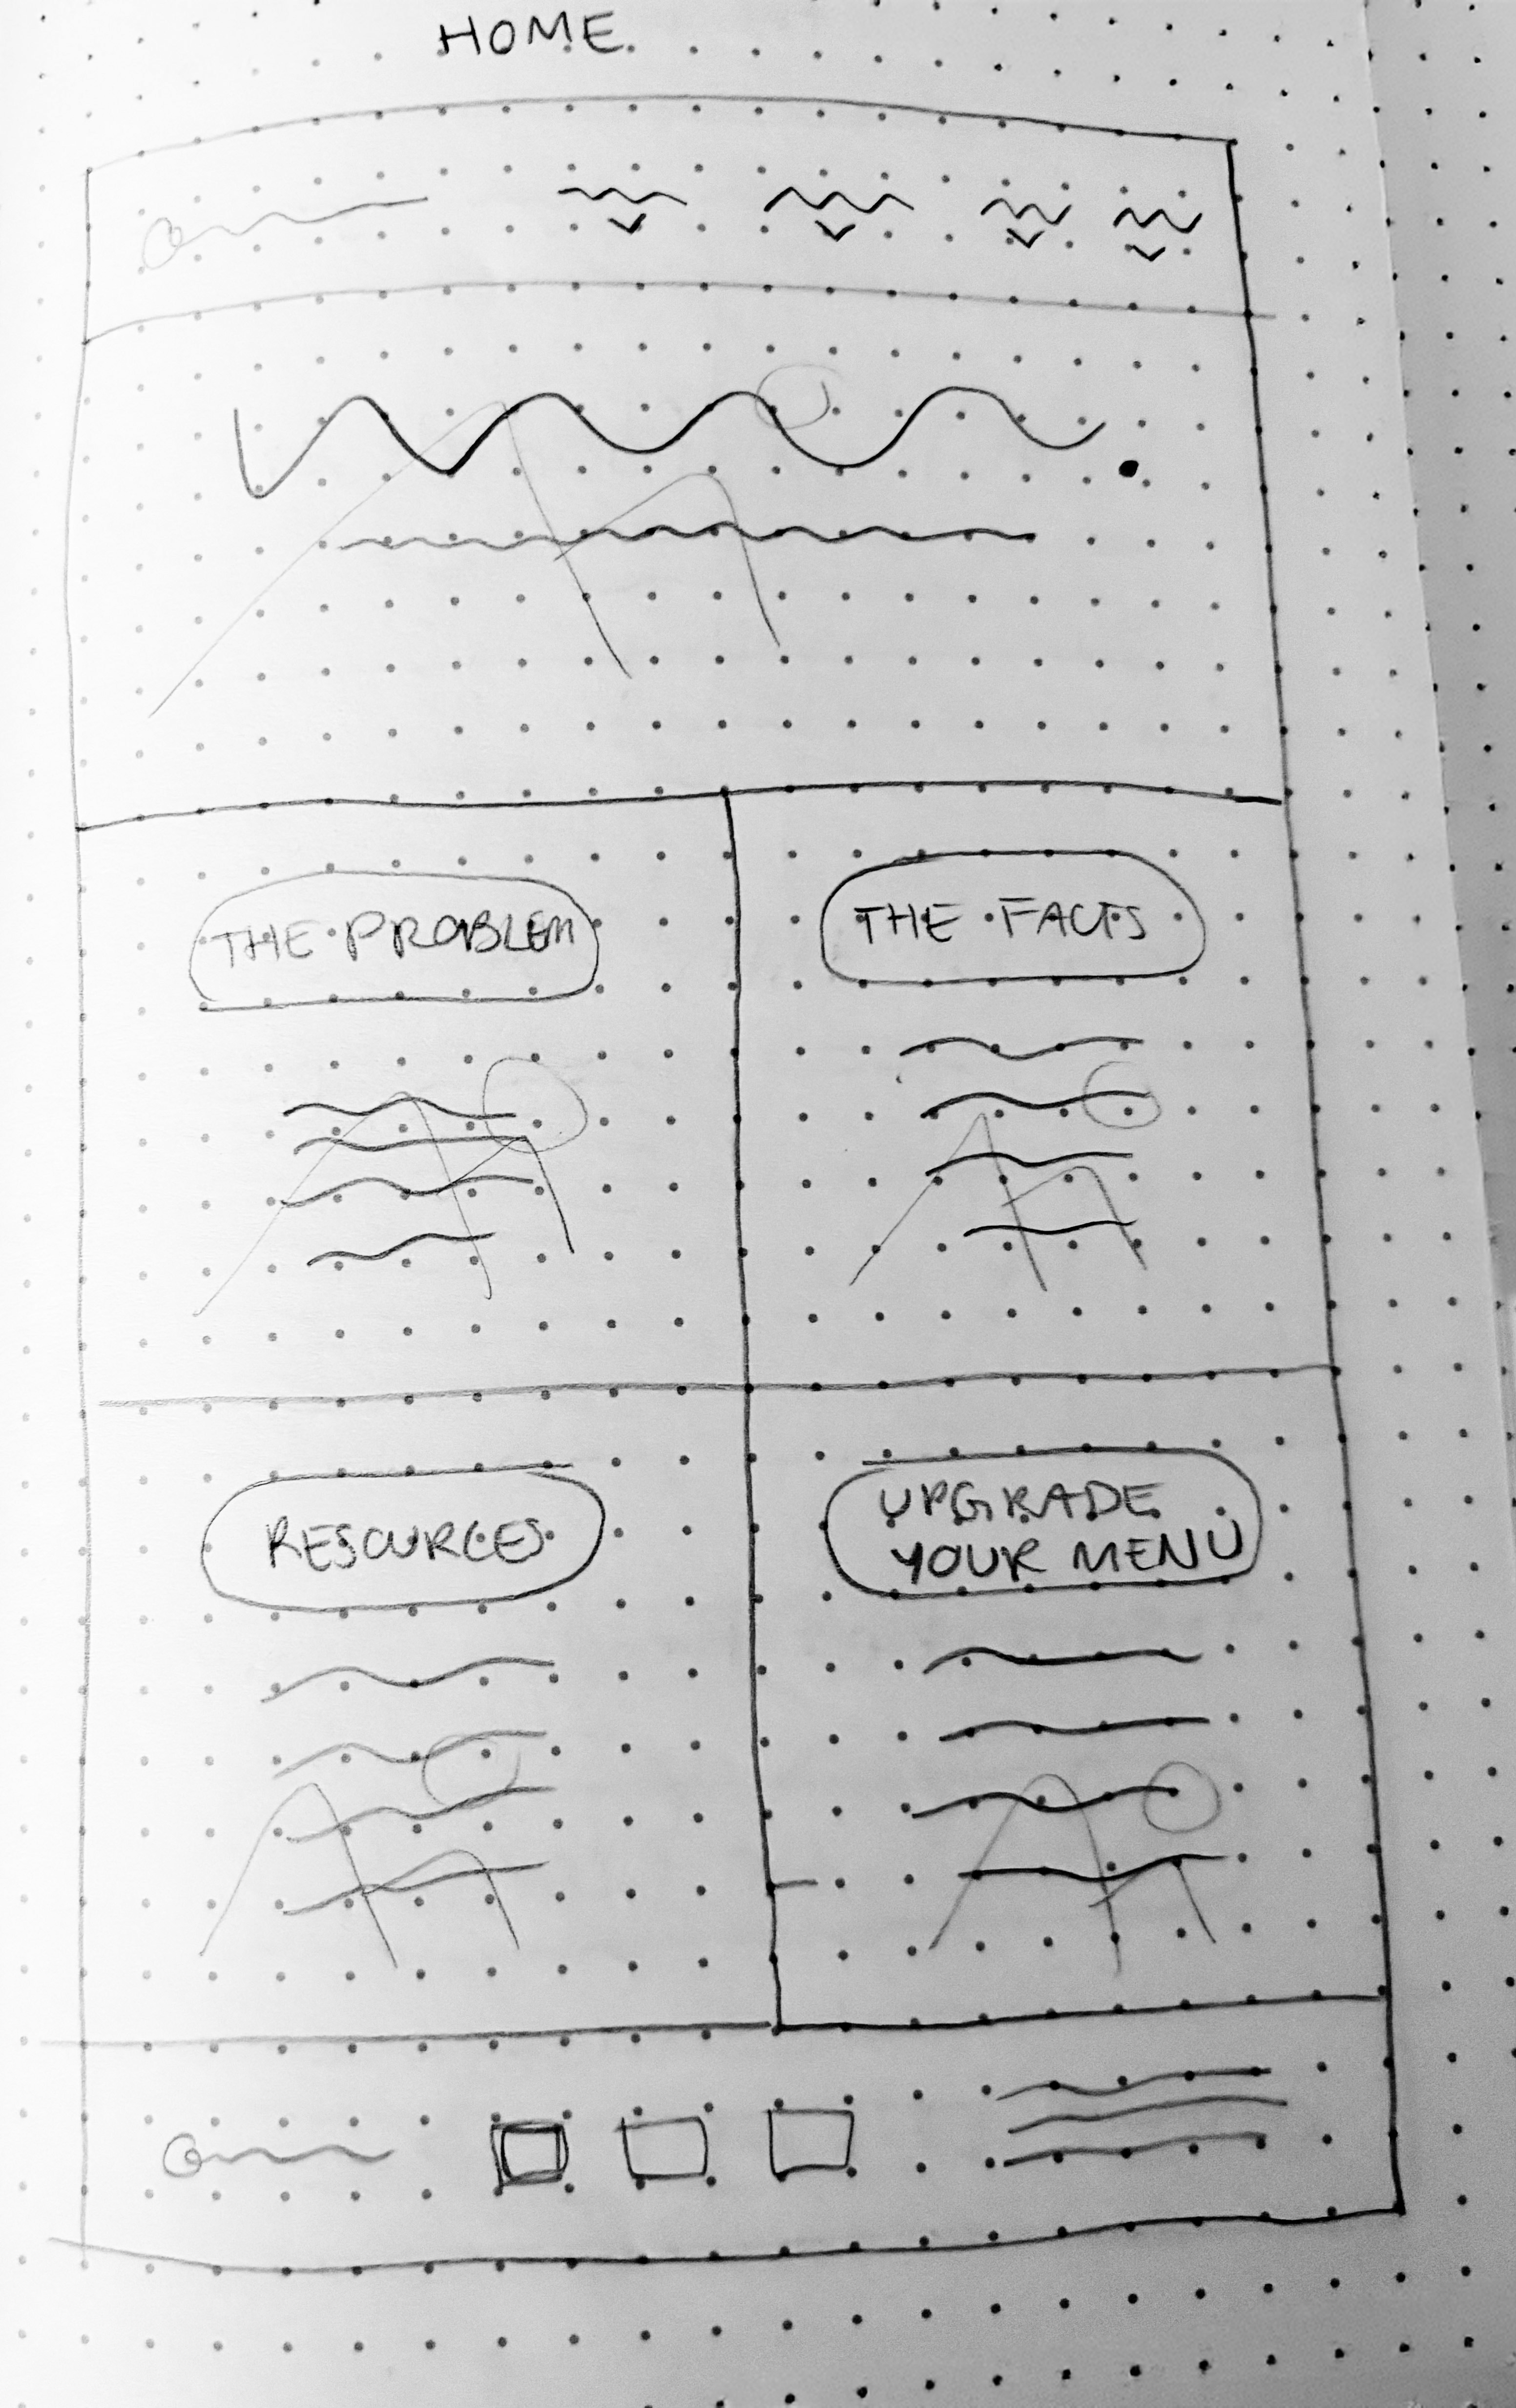 HOME
THE PROBLEM
THE FACTS
RESOURCES
UPGRADE
YOUR MENU